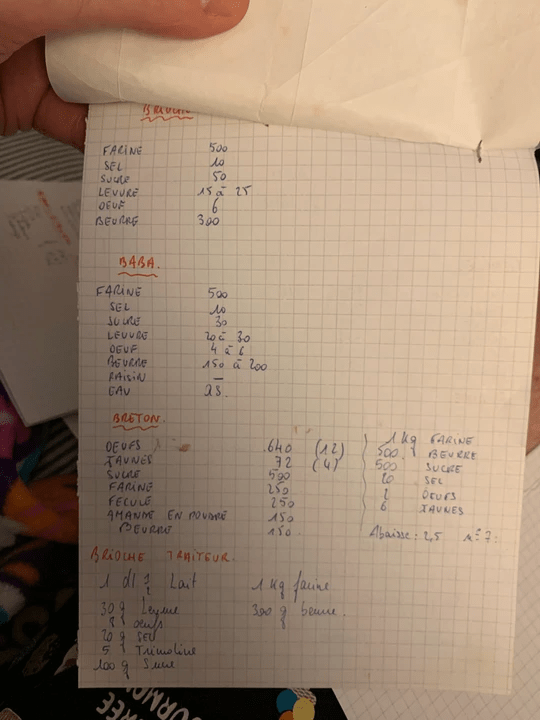 BRIOCHE
FARINE 500
SEL 10
SUCRE 50
LEVURE 15 à 25
OEUF 6
BEURRE 300
BABA.
FARINE 500
SEL 10
SUCRE 30
LEVURE 20 à 30
OEUF 4 à 6
BEURRE 150 à 200
RAISIN —
EAU 25.
BRETON.
OEUFS 640 (12)
JAUNES 72 (4)
SUCRE 500
FARINE 250
FECULE 250
AMANDE EN POUDRE 150
BEURRE 150.
1 kg FARINE
500 g BEURRE
500 SUCRE
20 SEL
2 OEUFS
6 JAUNES
Abaisse: 2,5 n° 7.
BRIOCHE TRAITEUR.
1 dl 1/2 Lait 1 kg farine
30 g Levure 300 g beurre.
8 oeufs
20 g SEL
5 Trimoline
100 g Sucre